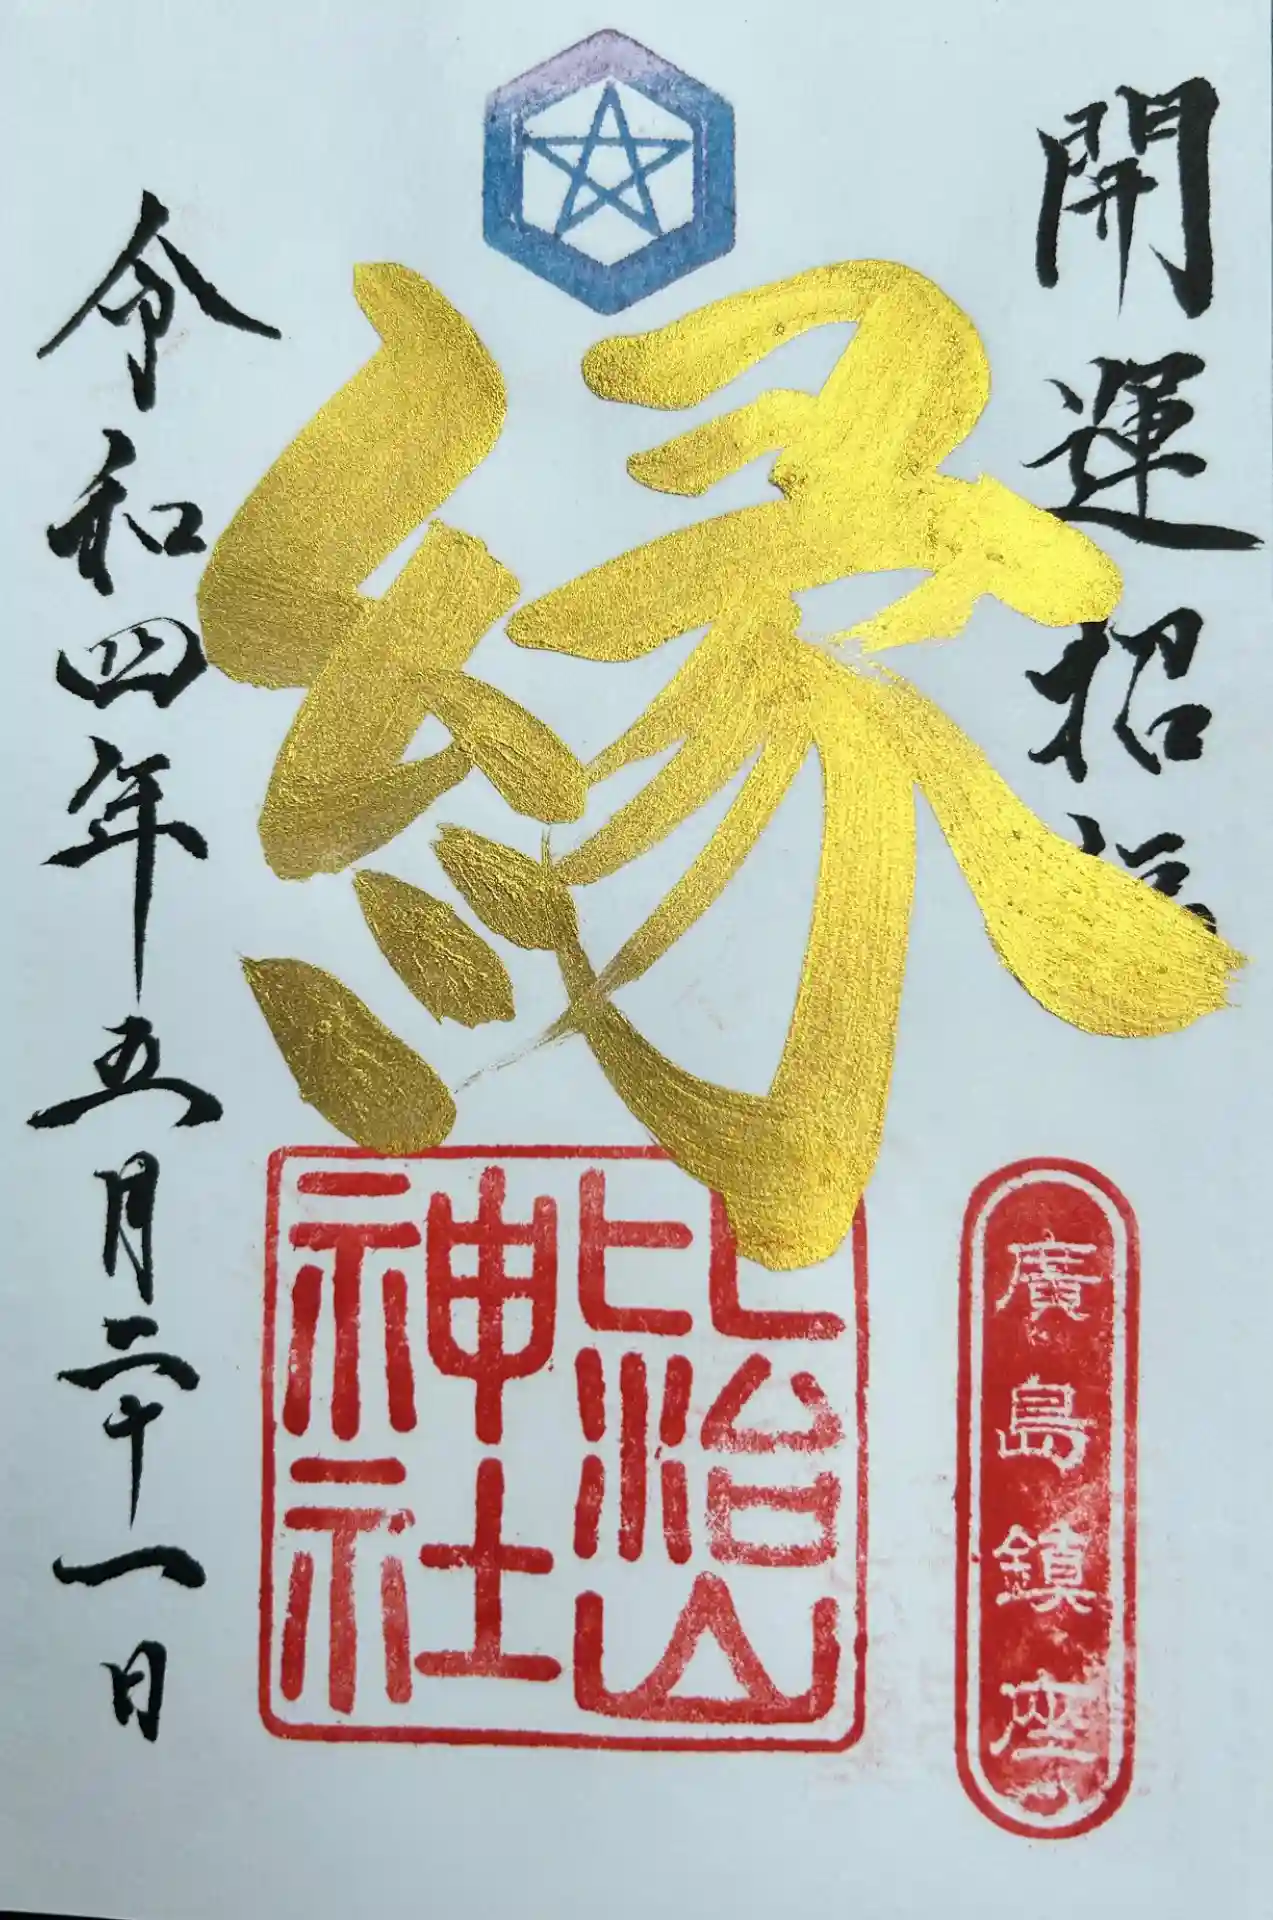 開運招福
縁
廣島鎮座
比治山
神社
令和四年五月二十一日